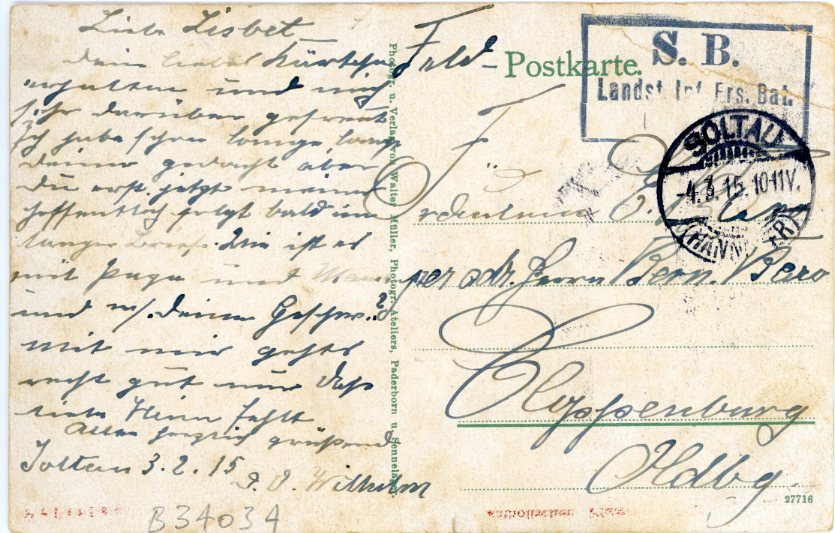 Liebe Lisbet
Dein liebes Kärtchen
erhalten und mich
sehr darüber gefreut
ich habe schon lange, lange
deiner gedacht aber
du erst jetzt meiner
hoffentlich folgt bald ein
langer Brief. Wie ist es
mit Papa und Mama
und w/. deine Geschw.?
mit mir gehts
recht gut nur daß
Alle herzlich grüßend
Soltau 3.2.15
Wilhelm
Photogr. u. Verlag von Walter Müller, Photogr. Ateliers, Paderborn u. Sennelager
Feld-
Postkarte.
S. B.
Landst. Inf. Ers. Bat.
SOLTAU
-4.3.15.10-11V.
(HANNOVER)
Fräulein E.
per adr. Herrn Bern.
Cloppenburg
Oldbg.
27716
B34034